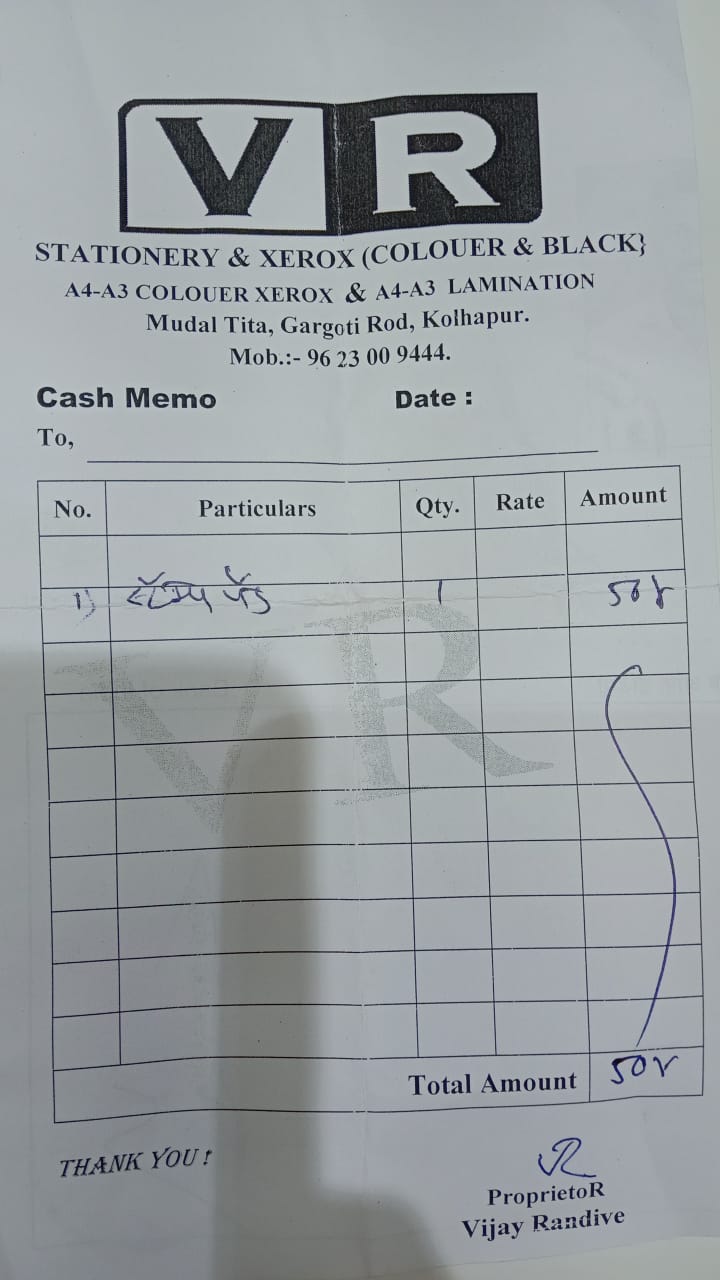 VR
STATIONERY & XEROX (COLOUER & BLACK}
A4-A3 COLOUER XEROX & A4-A3 LAMINATION
Mudal Tita, Gargoti Rod, Kolhapur.
Mob.:- 96 23 00 9444.
Cash Memo Date :
To,
No. Particulars Qty. Rate Amount
1) स्टॅम्प पॅड 1
VR
Total Amount 50
THANK YOU !
VR
ProprietoR
Vijay Randive